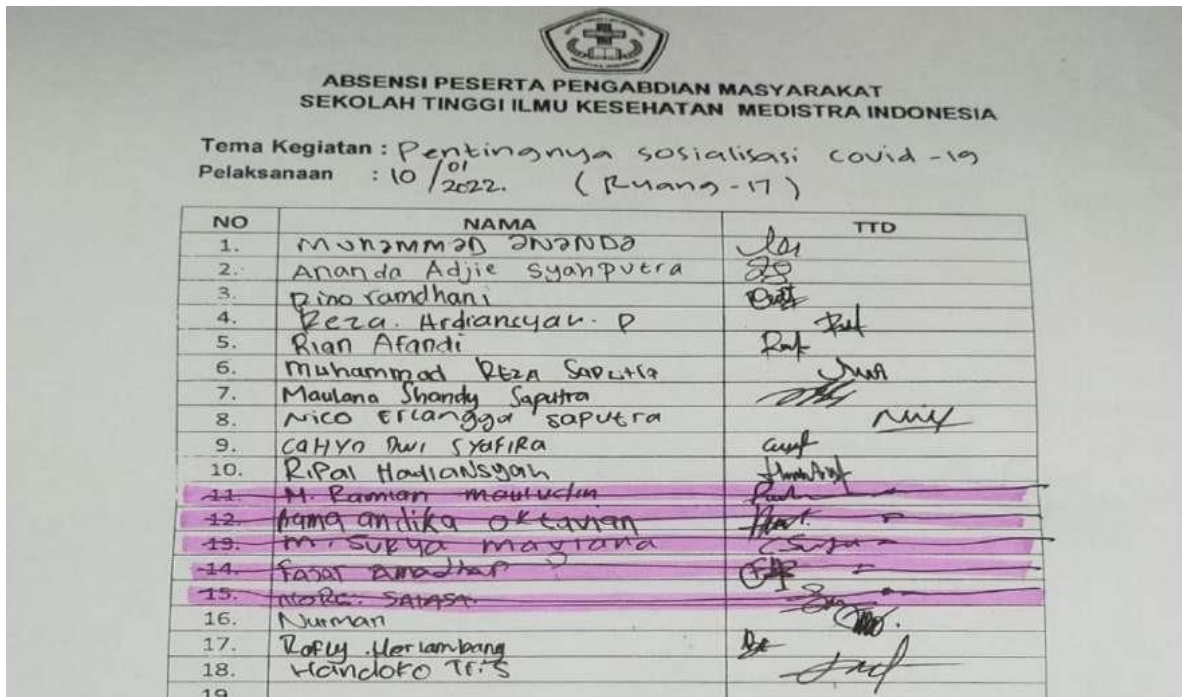 ABSENSI PESERTA PENGABDIAN MASYARAKAT
SEKOLAH TINGGI ILMU KESEHATAN MEDISTRA INDONESIA
Tema Kegiatan : Pentingnya sosialisasi covid-19
Pelaksanaan : 10/01/2022. (Ruang-17)
NO NAMA TTD
1. MUHAMMAD ANANDA
2. Ananda Adjie Syahputra
3. Rino ramdhani
4. Reza. Ardiansyah. P
5. Rian Afandi
6. Muhammad REZA Saputra
7. Maulana Shandy Saputra
8. Nico Erlangga saputra
9. CAHYO DWI SYAFIRA
10. Ripal HadiaNsyah
11. M. Ramian mauludin
12. Rama andika oktavian
13. M. Surya maulana
14. Fajar
15.
16. Nurman
17. Rofly Herlambang
18. Handoko Tr.S
19